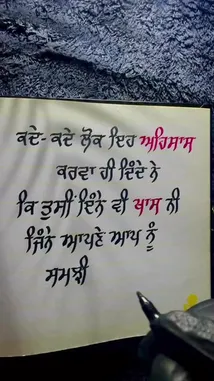 ਕਦੇ-ਕਦੇ ਲੋਕ ਇਹ ਅਹਿਸਾਸ
ਕਰਵਾ ਹੀ ਦਿੰਦੇ ਨੇ
ਕਿ ਤੁਸੀਂ ਇੰਨੇ ਵੀ ਖਾਸ ਨੀ
ਜਿੰਨੇ ਆਪਣੇ ਆਪ ਨੂੰ
ਸਮਝੀ